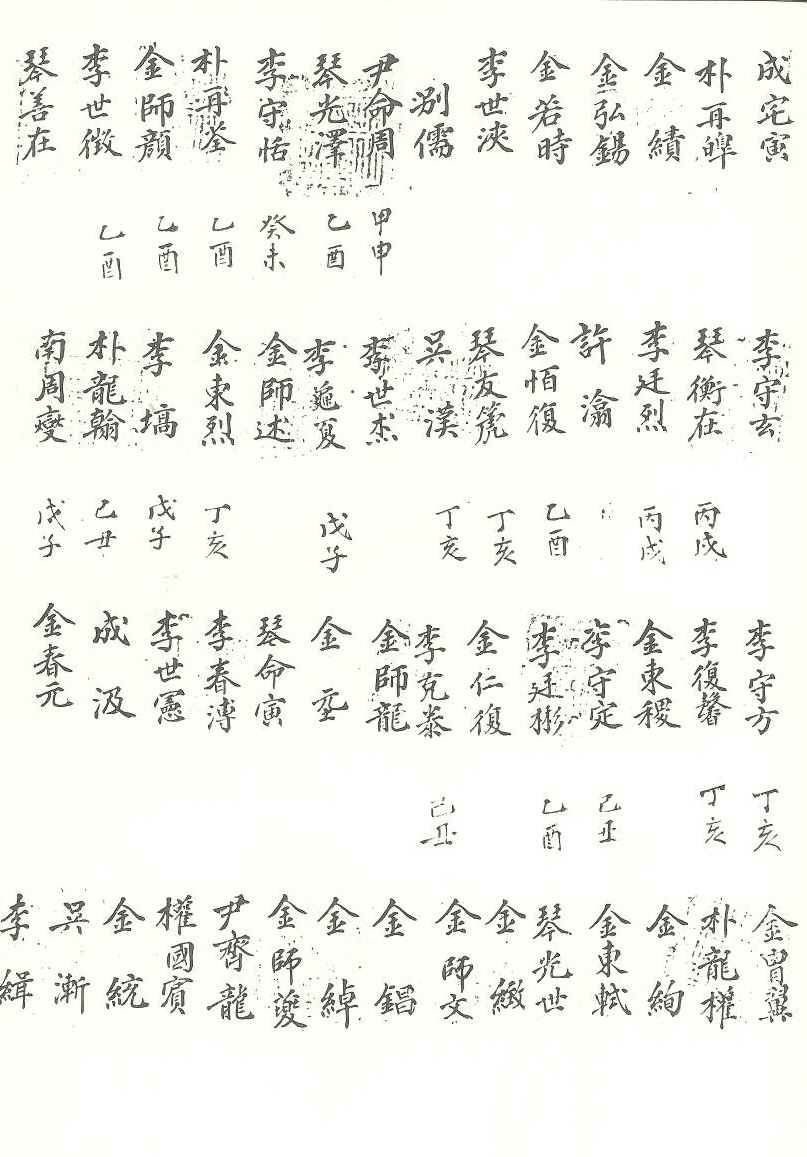 成㝎寅
朴再皡
金績
金弘錫
金若時
李世浹
別儒
尹命周 甲申
琴光澤 乙酉
李守恬 癸未
朴再荃 乙酉
金師顔 乙酉
李世徵 乙酉
琴善在
李守玄
琴衡在 丙戌
李廷烈 丙戌
許瀹
金恒復 乙酉
琴友篪 丁亥
吴漢 丁亥
李世杰
李龜夏 戊子
金師述
金東烈 丁亥
李塙 戊子
朴龍翰 己丑
南周燮 戊子
李守方 丁亥
李復馨 丁亥
金東稷
李守定 己丑
李廷彬 乙酉
金仁復
李克泰 己丑
金師龍
金
琴命寅
李春溥
李世憲
成汲
金春元
金冑翼
朴龍權
金絢
金東軾
琴光世
金緻
金師文
金錩
金綽
金師夔
尹齊龍
權國賓
金統
吴漸
李緝